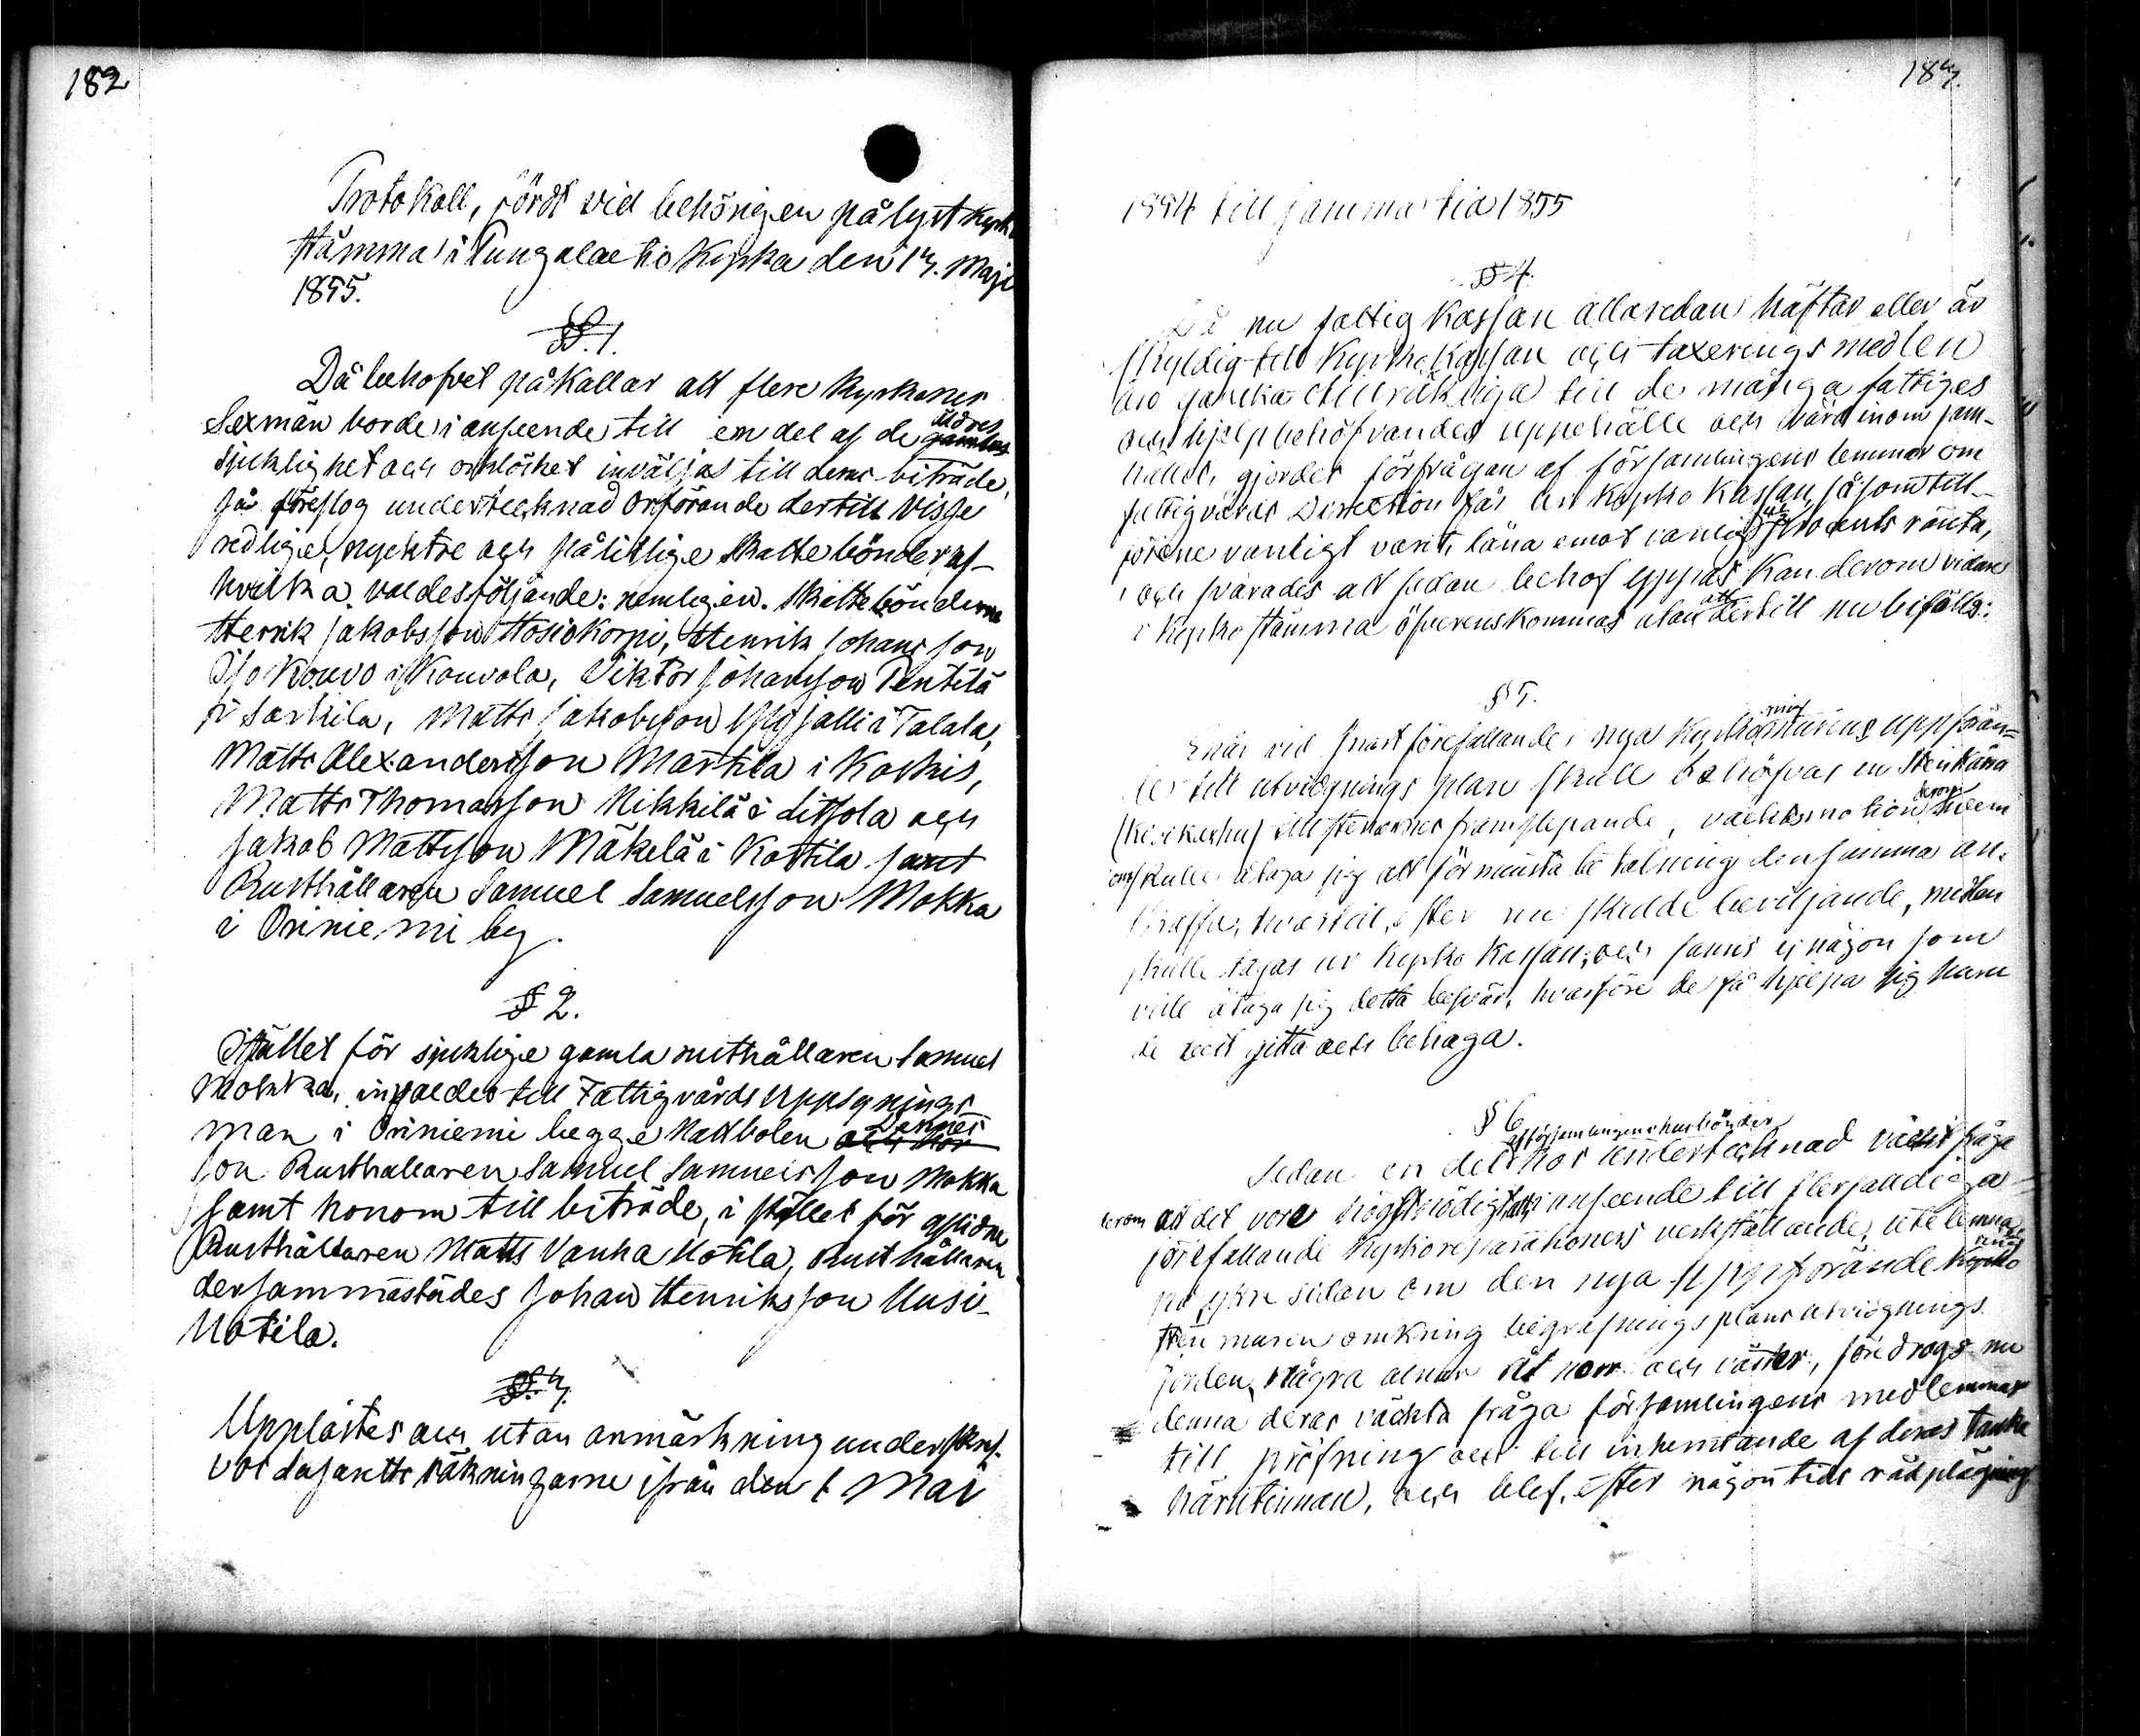 182
Protokoll, fördt vid behörigen pålyst Kyrko
stämma i Pungalaetio Kyrka den 13. Maji
1855.
§ 1.
Då behofvet påkallar att flere Kyrkones
Sexmän borde i anseende till en del af de äldres gamles
sjuklighet och orklöshet inväljas till deras biträde,
så föreslog undertecknad Ordförande dertill Visse
redlige, nycktre och pålitlige Skattebönder, af
hvilka valdes följande: nemligen. Skattebönderne
Henrik Jakobsson Hosiokorpi, Henrik Johansson
Iso Kouvo i Kouvola, Viktor Johansson Pentilä
i Sarkila, Matts Jakobsson i Talala,
Matts Alexandersson Martila i Koskis,
Matts Thomasson Nikkilä i Litsola och
Jakob Mattsson Mäkelä i Kottila samt
Rusthållaren Samuel Samuelsson Mokka
i Oriniemi by.
§ 2.
I stället för sjuklige gamla rusthållaren Samuel
Mokka, invaldes till Fattigvårds Uppsynings
man i Oriniemi begge Mattbolen Dennes och hos
son Rusthållaren Samuel Samuelsson Mokka
samt honom till biträde, i stället för aflidne
Rusthållaren Matts Vanha Uotila, Rusthållaren
dersammastädes Johan Henriksson Uusi-
Uotila.
§. 3.
Upplästes och utan anmärkning underskref-
vos räkningarne ifrån den 1 Maj
183.
1854 till samma tid 1855
§ 4.
Då nu fattig Kassan allaredan häftar eller är
skyldig till Kyrko Kassan och taxerings medlen
äro ganska otillräkliga till de många fattiges
och hjelpbehöfvandes uppehälle och vård inom sam-
hället, gjordes förfrågan af församlingens lemmar om
fattigvårds Direction får ur Kyrko Kassan, såsom till-
förene vanligt varit, låna emot vanlig procents ränta,
och svarades att sedan behof yppas kan derom vidare
i Kyrkostämma öfverenskommas utan att dertill nu bifalls.
§ 5.
Enär vid snart förefallande nya Kyrko murens uppförän-
de till utvidgnings plan skull behöfvas en Stenkärra
(Kivikärry) till stenarnes framsläpande, väcktes motion derom hvem
som skulle åtaga sig att för minsta betalning densamma an-
skaffa, hvartil, efter nu skedde beviljande, medlen
skulle tagas ur Kyrko Kassan; och fanns ej någon som
ville åtaga sig detta besvär, hvarföre de få hjelpa sig huru
de bäst gitta och behaga.
§ 6
Sedan en del af församlingens husbönder hos undertecknad väckt fråga
derom att det vore högstnödigt att i anseende till flerfaldiga
förefallande Kyrkoreparationers verkställande, utelemna
på yttre sidan om den nya uppförande Kyrko
sten muren omkring begrafningsplans utvidgnings
jorden, några alnar åt norr och väster, föredrogs nu
denna deras väckta fråga församlingens medlemmar
till pröfning och till inhemtande af deras tanke
härutinnan, och blef, efter någon tids rådplägning